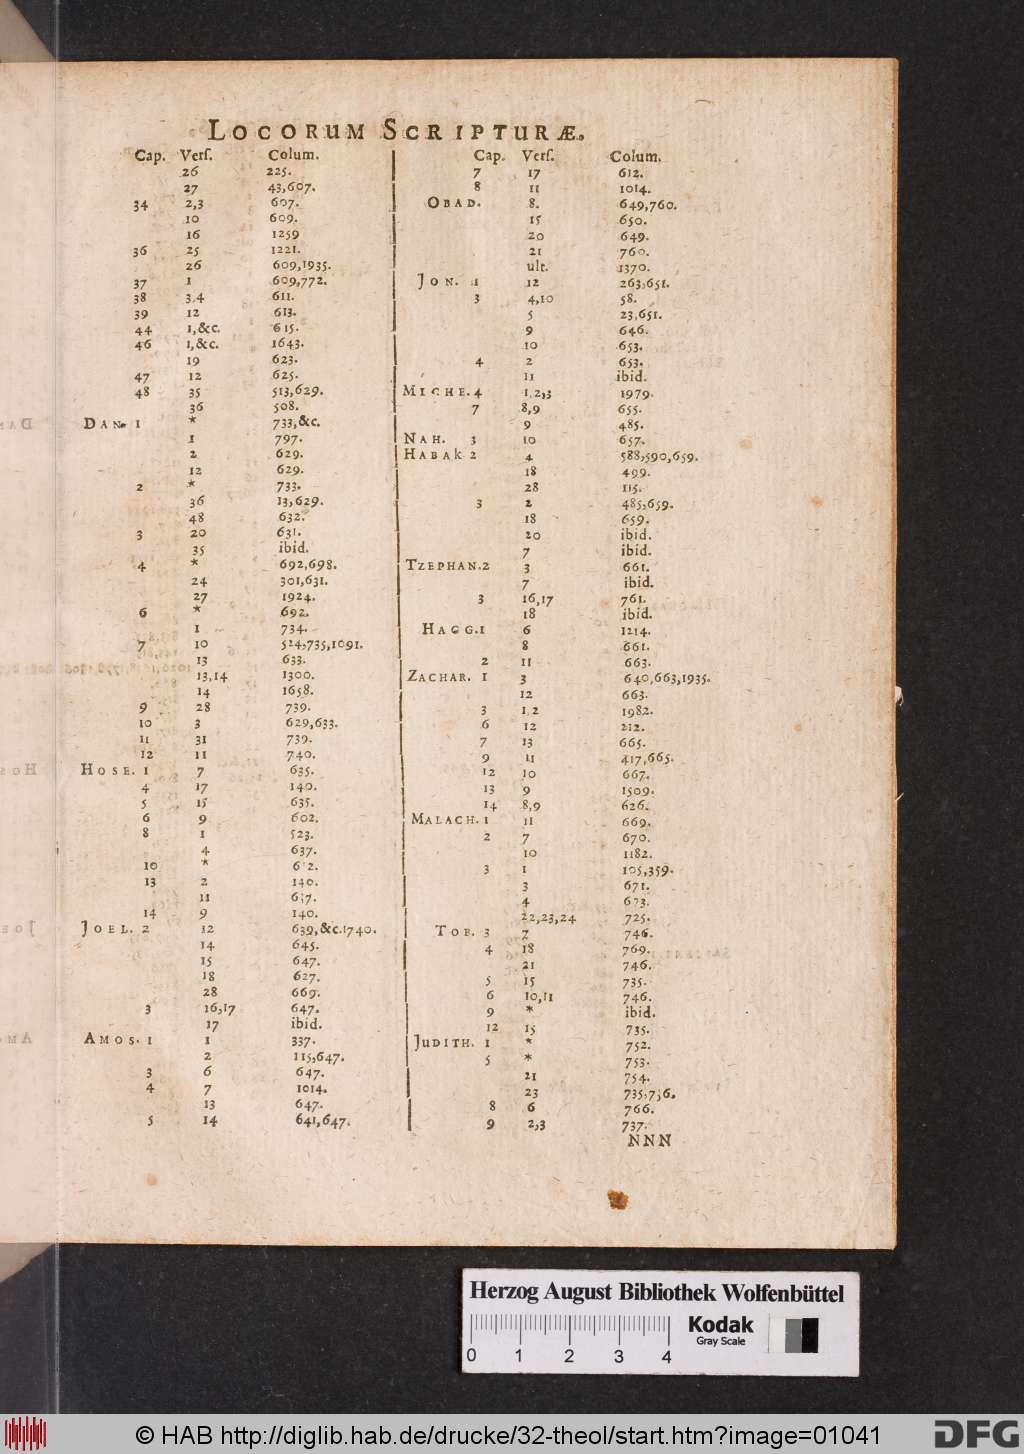 LOCORUM SCRIPTURÆ.
Cap. Vers. Colum.
26 225.
27 43,607.
34 2,3 607.
10 609.
16 1259
36 25 1221.
26 609,1935.
37 1 609,772.
38 3,4 611.
39 12 613.
44 1,&c. 615.
46 1,&c. 1643.
19 623.
47 12 625.
48 35 513,629.
36 508.
DAN. 1 * 733,&c.
1 797.
2 629.
12 629.
2 * 733.
36 13,629.
48 632.
3 20 631.
35 ibid.
4 * 692,698.
24 301,631.
27 1924.
6 * 692.
1 734.
7 10 524,735,1091.
13 633.
13,14 1300.
14 1658.
9 28 739.
10 3 629,633.
11 31 739.
12 11 740.
HOSE. 1 7 635.
4 17 140.
5 15 635.
6 9 602.
8 1 523.
4 637.
10 *
13 2 140.
11
14 9 140.
JOEL. 2 12 639,&c.1740.
14 645.
15 647.
18 627.
28 669.
3 16,17 647.
17 ibid.
AMOS. 1 1 337.
2 115,647.
3 6 647.
4 7 1014.
13 647.
5 14 641,647.
Cap. Vers. Colum.
7 17 612.
8 11 1014.
OBAD. 8. 649,760.
15 650.
20 649.
21 760.
ult. 1370.
JON. 1 12 263,651.
3 4,10 58.
5 23,651.
9 646.
10 653.
4 2 653.
11 ibid.
MICHE. 4 1,2,3 1979.
7 8,9 655.
9 485.
NAH. 3 10 657.
HABAK 2 4 588,590,659.
18 499.
28 115.
3 2 485,659.
18 659.
20 ibid.
7 ibid.
TZEPHAN. 2 3 661.
7 ibid.
3 16,17 761.
18 ibid.
HAGG. 1 6 1214.
8 661.
2 11 663.
ZACHAR. 1 3 640,663,1935.
12 663.
3 1,2 1982.
6 12 212.
7 13 665.
9 11 417,665.
12 10 667.
13 9 1509.
14 8,9 626.
MALACH. 1 11 669.
2 7 670.
10 1182.
3 1 105,359.
3 671.
4 673.
22,23,24 725.
TOB. 3 7 746.
4 18 769.
21 746.
5 15 735.
6 10,11 746.
9 * ibid.
12 15 735.
JUDITH. 1 * 752.
5 * 753.
21 754.
23 735,736.
8 6 766.
9 2,3 737.
NNN
Herzog August Bibliothek Wolfenbüttel
Kodak
Gray Scale
0 1 2 3 4
© HAB http://diglib.hab.de/drucke/32-theol/start.htm?image=01041
DFG